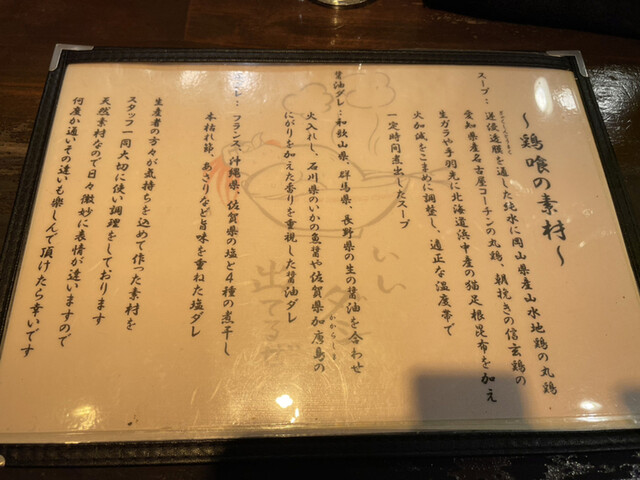 ～鶏喰の素材～
スープ：逆浸透膜を通した純水に岡山県産山水地鶏の丸鶏、
愛知県産名古屋コーチンの丸鶏、朝挽きの信玄鶏の
生ガラや手羽先に北海道浜中産の猫足根昆布を加え
火加減をこまめに調整し、適正な温度帯で
一定時間煮出したスープ
醤油ダレ：和歌山県、群馬県、長野県の生の醤油を合わせ
火入れし、石川県のいかの魚醤や佐賀県加唐島の
かからしま
にがりを加えた香りを重視した醤油ダレ
レ：フランス、沖縄県、佐賀県の塩と4種の煮干し
本枯れ節、あさりなど旨味を重ねた塩ダレ
生産者の方々が気持ちを込めて作った素材を
スタッフ一同大切に使い調理をしております
天然素材なので日々微妙に表情が違いますので
何度か通いその違いも楽しんで頂けたら幸いです
いい
ダシ
出てるぜ